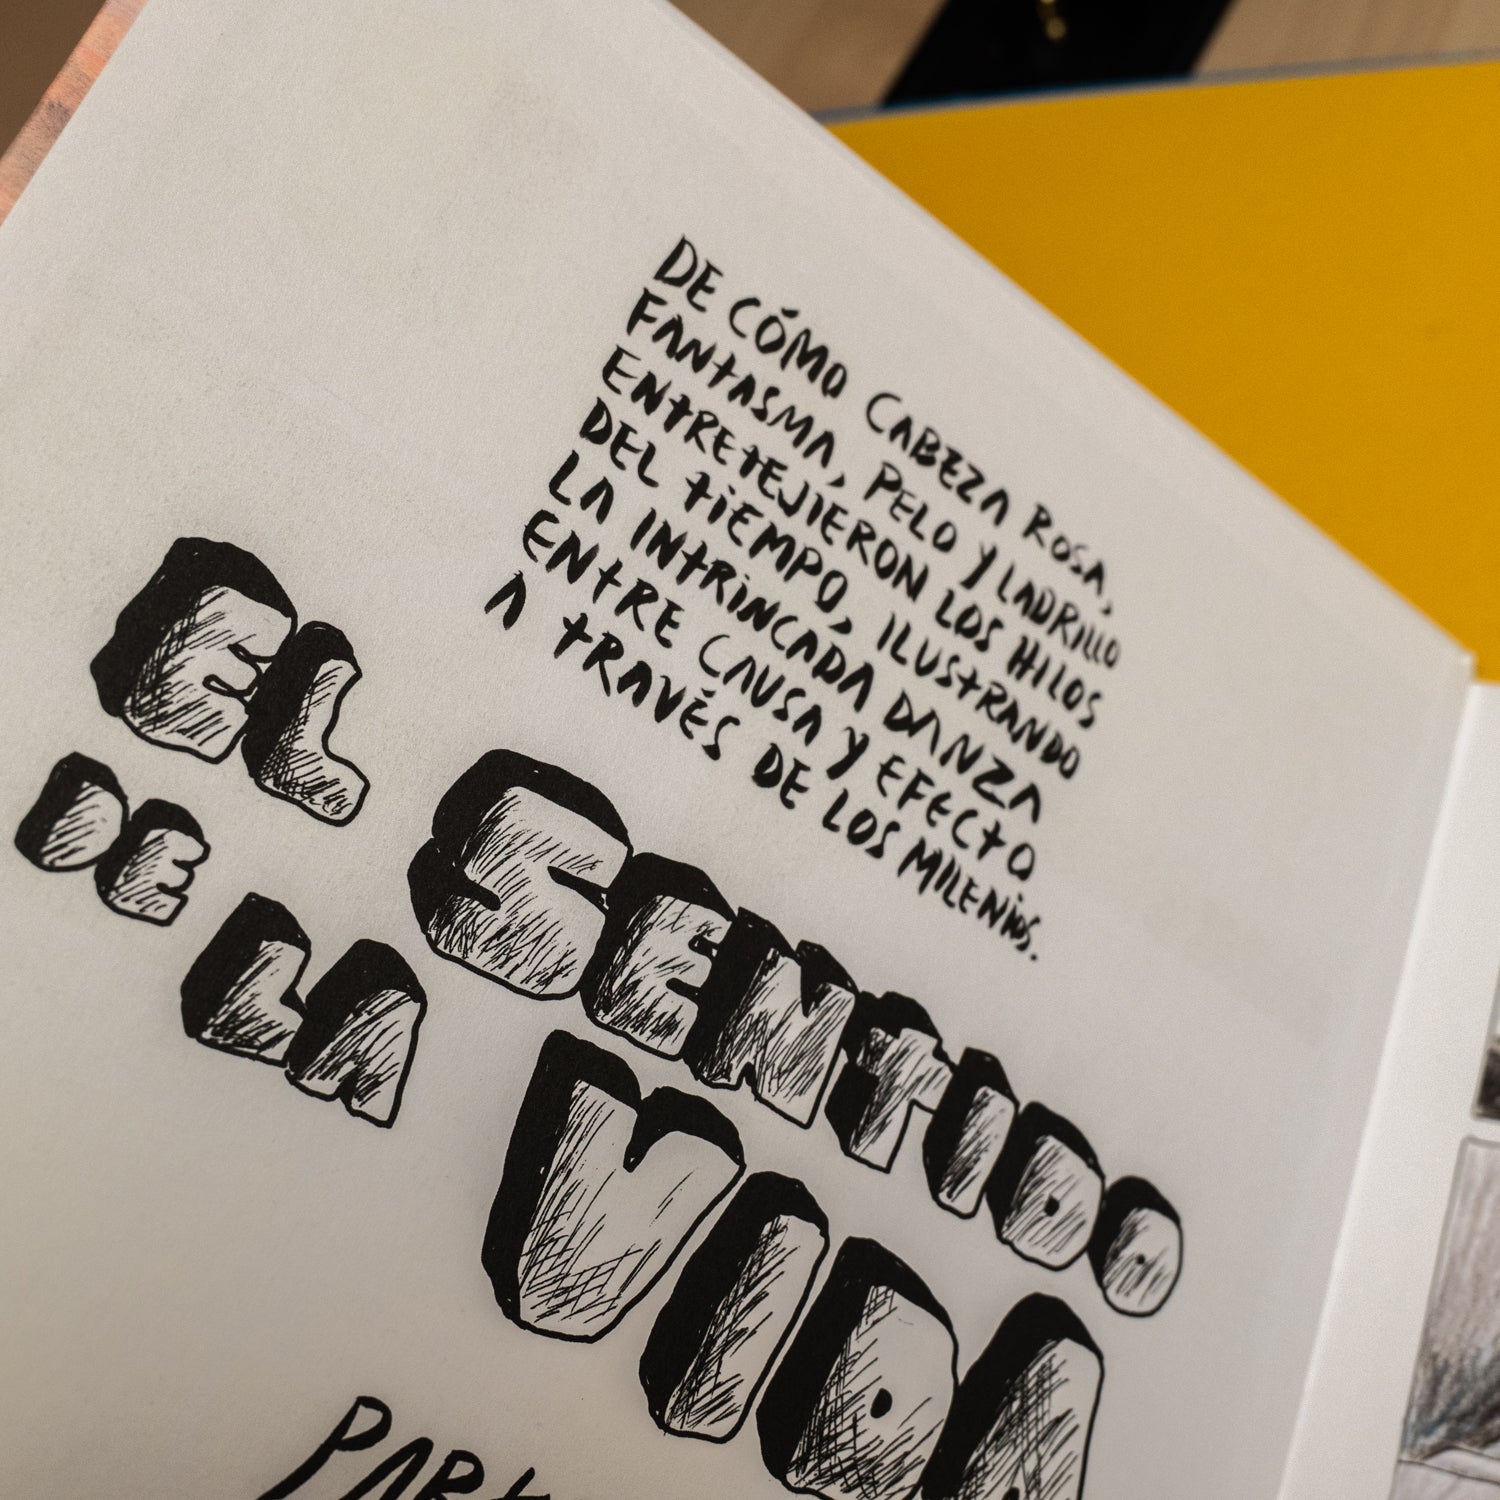 DE CÓMO CABEZA ROSA,
FANTASMA, PELO Y LADRILLO
ENTRETEJIERON LOS HILOS
DEL TIEMPO, ILUSTRANDO
LA INTRINCADA DANZA
ENTRE CAUSA Y EFECTO
A TRAVÉS DE LOS MILENIOS.
EL SENTIDO
DE LA VIDA